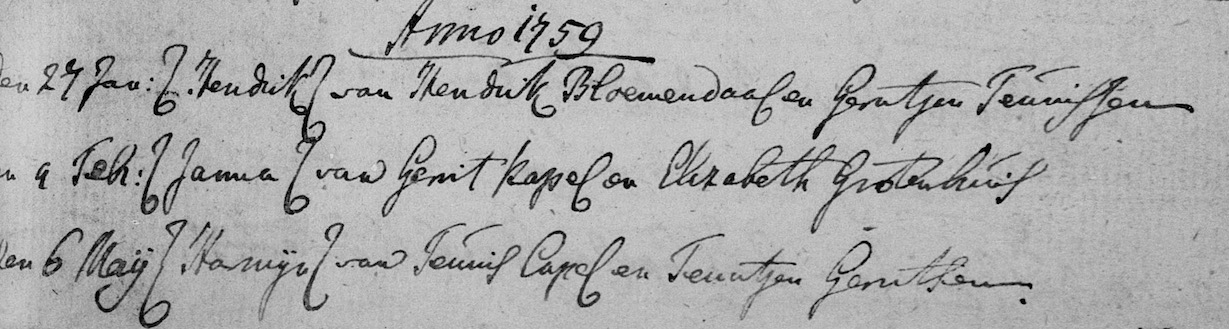 Anno 1759
den 27 Jan: Hendrik van Hendrik Bloemendaal en Gerritjen Teunissen
den 9 Feb: Janna van Gerrit Kapel en Elizabeth Grotenhuis
den 6 Maij Harmijn van Teunis Capel en Teuntjen Gerritsen